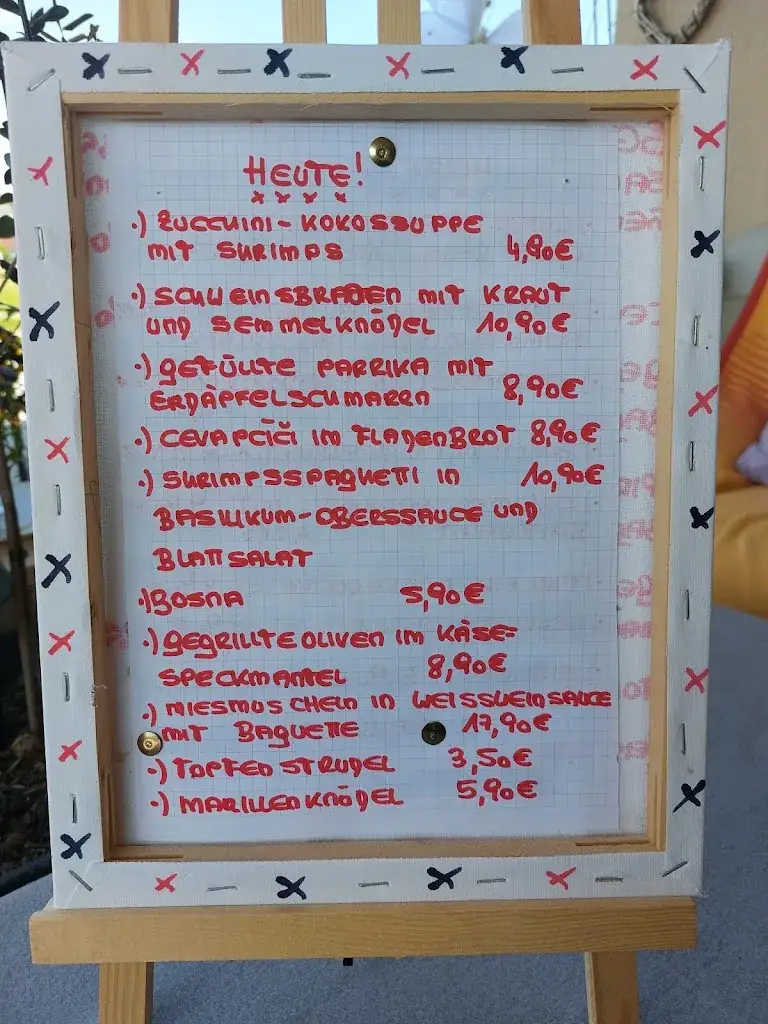 HEUTE!
·) ZUCCHINI-KOKOSSUPPE
MIT SHRIMPS 4,90€
·) SCHWEINSBRATEN MIT KRAUT
UND SEMMELKNÖDEL 10,90€
·) GEFÜLLTE PAPRIKA MIT
ERDÄPFELSCHMARRN 8,90€
·) CEVAPCIČI IM FLADENBROT 8,90€
·) SHRIMPSSPAGHETTI IN 10,90€
BASILIKUM-OBERSSAUCE UND
BLATTSALAT
·) BOSNA 5,90€
·) GEGRILLTE OLIVEN IM KÄSE-
SPECKMANTEL 8,90€
·) MIESMUSCHELN IN WEISSWEINSAUCE
MIT BAGUETTE 17,90€
·) TOPFENSTRUDEL 3,50€
·) MARILLENKNÖDEL 5,90€